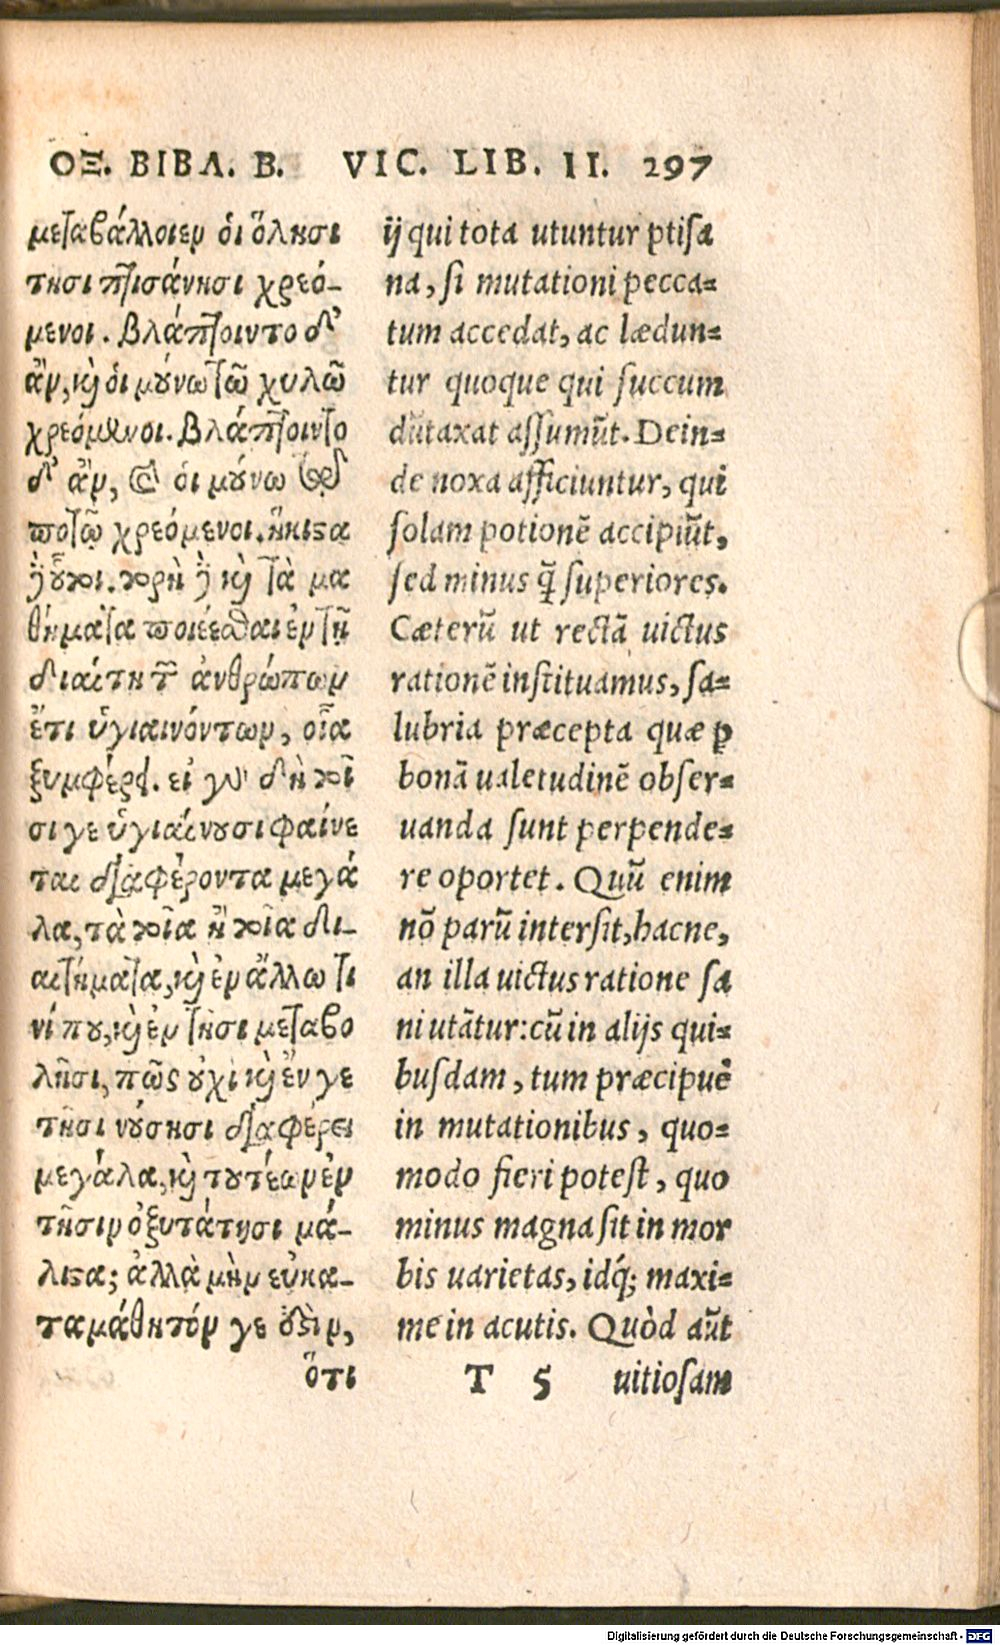 ΟΞ. ΒΙΒΛ. Β. VIC. LIB. II. 297
μεταβάλλοιεν ὁι ὅλησι
τῆσι πτισάνησι χρεό-
μενοι. βλάπτοιντο δ'
ἂν, κ̀ ὁι μούνω τῶ χυλῶ
χρεόμενοι. βλάπτοιντο
δ' ἂν, καὶ ὁι μούνω τῷ
ποτῷ χρεόμενοι. ἥκιστα
δὲ οὗτοι. χρὴ δὲ κ̀ τὰ μα
θήματα ποιέεσθαι ἐν τῇ
διαίτη τῶν ἀνθρώπων
ἔτι ὑγιαινόντων, οἷα
ξυμφέρει. εἰ γὰρ δὴ τοῖ
σι γε ὑγιαίνουσι φαίνε
ται διαφέροντα μεγά
λα, τὰ τοῖα ἢ τοῖα δι-
αιτήματα, κ̀ ἐν ἄλλω τι
νί που, κ̀ ἐν τῇσι μεταβο
λῇσι, πῶς οὐχὶ κ̀ ἔν γε
τῇσι νούσησι διαφέρει
μεγάλα, κ̀ τουτέων ἐν
τῇσιν ὀξυτάτησι μά-
λιστα; ἀλλὰ μὴν εὐκα-
ταμάθητόν γε ἐστὶν,
ὅτι
ij qui tota utuntur ptisa
na, si mutationi pecca=
tum accedat, ac lædun=
tur quoque qui succum
dūtaxat assumūt. Dein=
de noxa afficiuntur, qui
solam potionē accipiūt,
sed minus q̄ superiores.
Cæterū ut rectā uictus
rationē instituamus, sa=
lubria præcepta quæ ꝑ
bonā ualetudinē obser=
uanda sunt perpende=
re oportet. Quū enim
nō parū intersit, hacne,
an illa uictus ratione sa
ni utātur: cū in alijs qui=
busdam, tum præcipuè
in mutationibus, quo=
modo fieri potest, quo
minus magna sit in mor
bis uarietas, idq́; maxi=
me in acutis. Quòd aūt
T 5 uitiosam
Digitalisierung gefördert durch die Deutsche Forschungsgemeinschaft - DFG